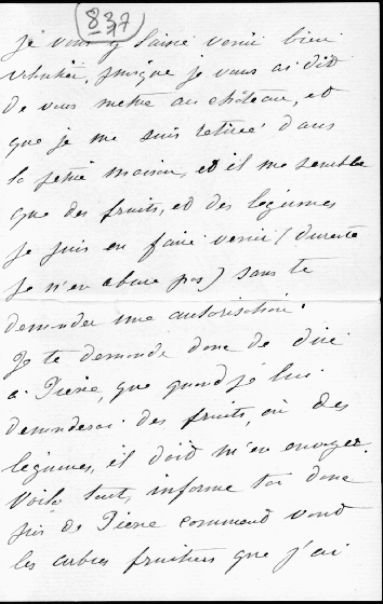 837
je vous y laisse venir bien
volontiers, puisque je vous ai dit
de vous mettre au château, et
que je me suis retirée dans
la petite maison, et il me semble
que des fruits, et des légumes
je puis en faire venir (
je n'en abuse pas) sans te
demander une autorisation.
Je te demande donc de dire
à Pierre, que quand je lui
demanderai des fruits, ou des
légumes, il doit m'en envoyer.
Voilà tout, informe toi donc
près de Pierre comment vont
les arbres fruitiers que j'ai